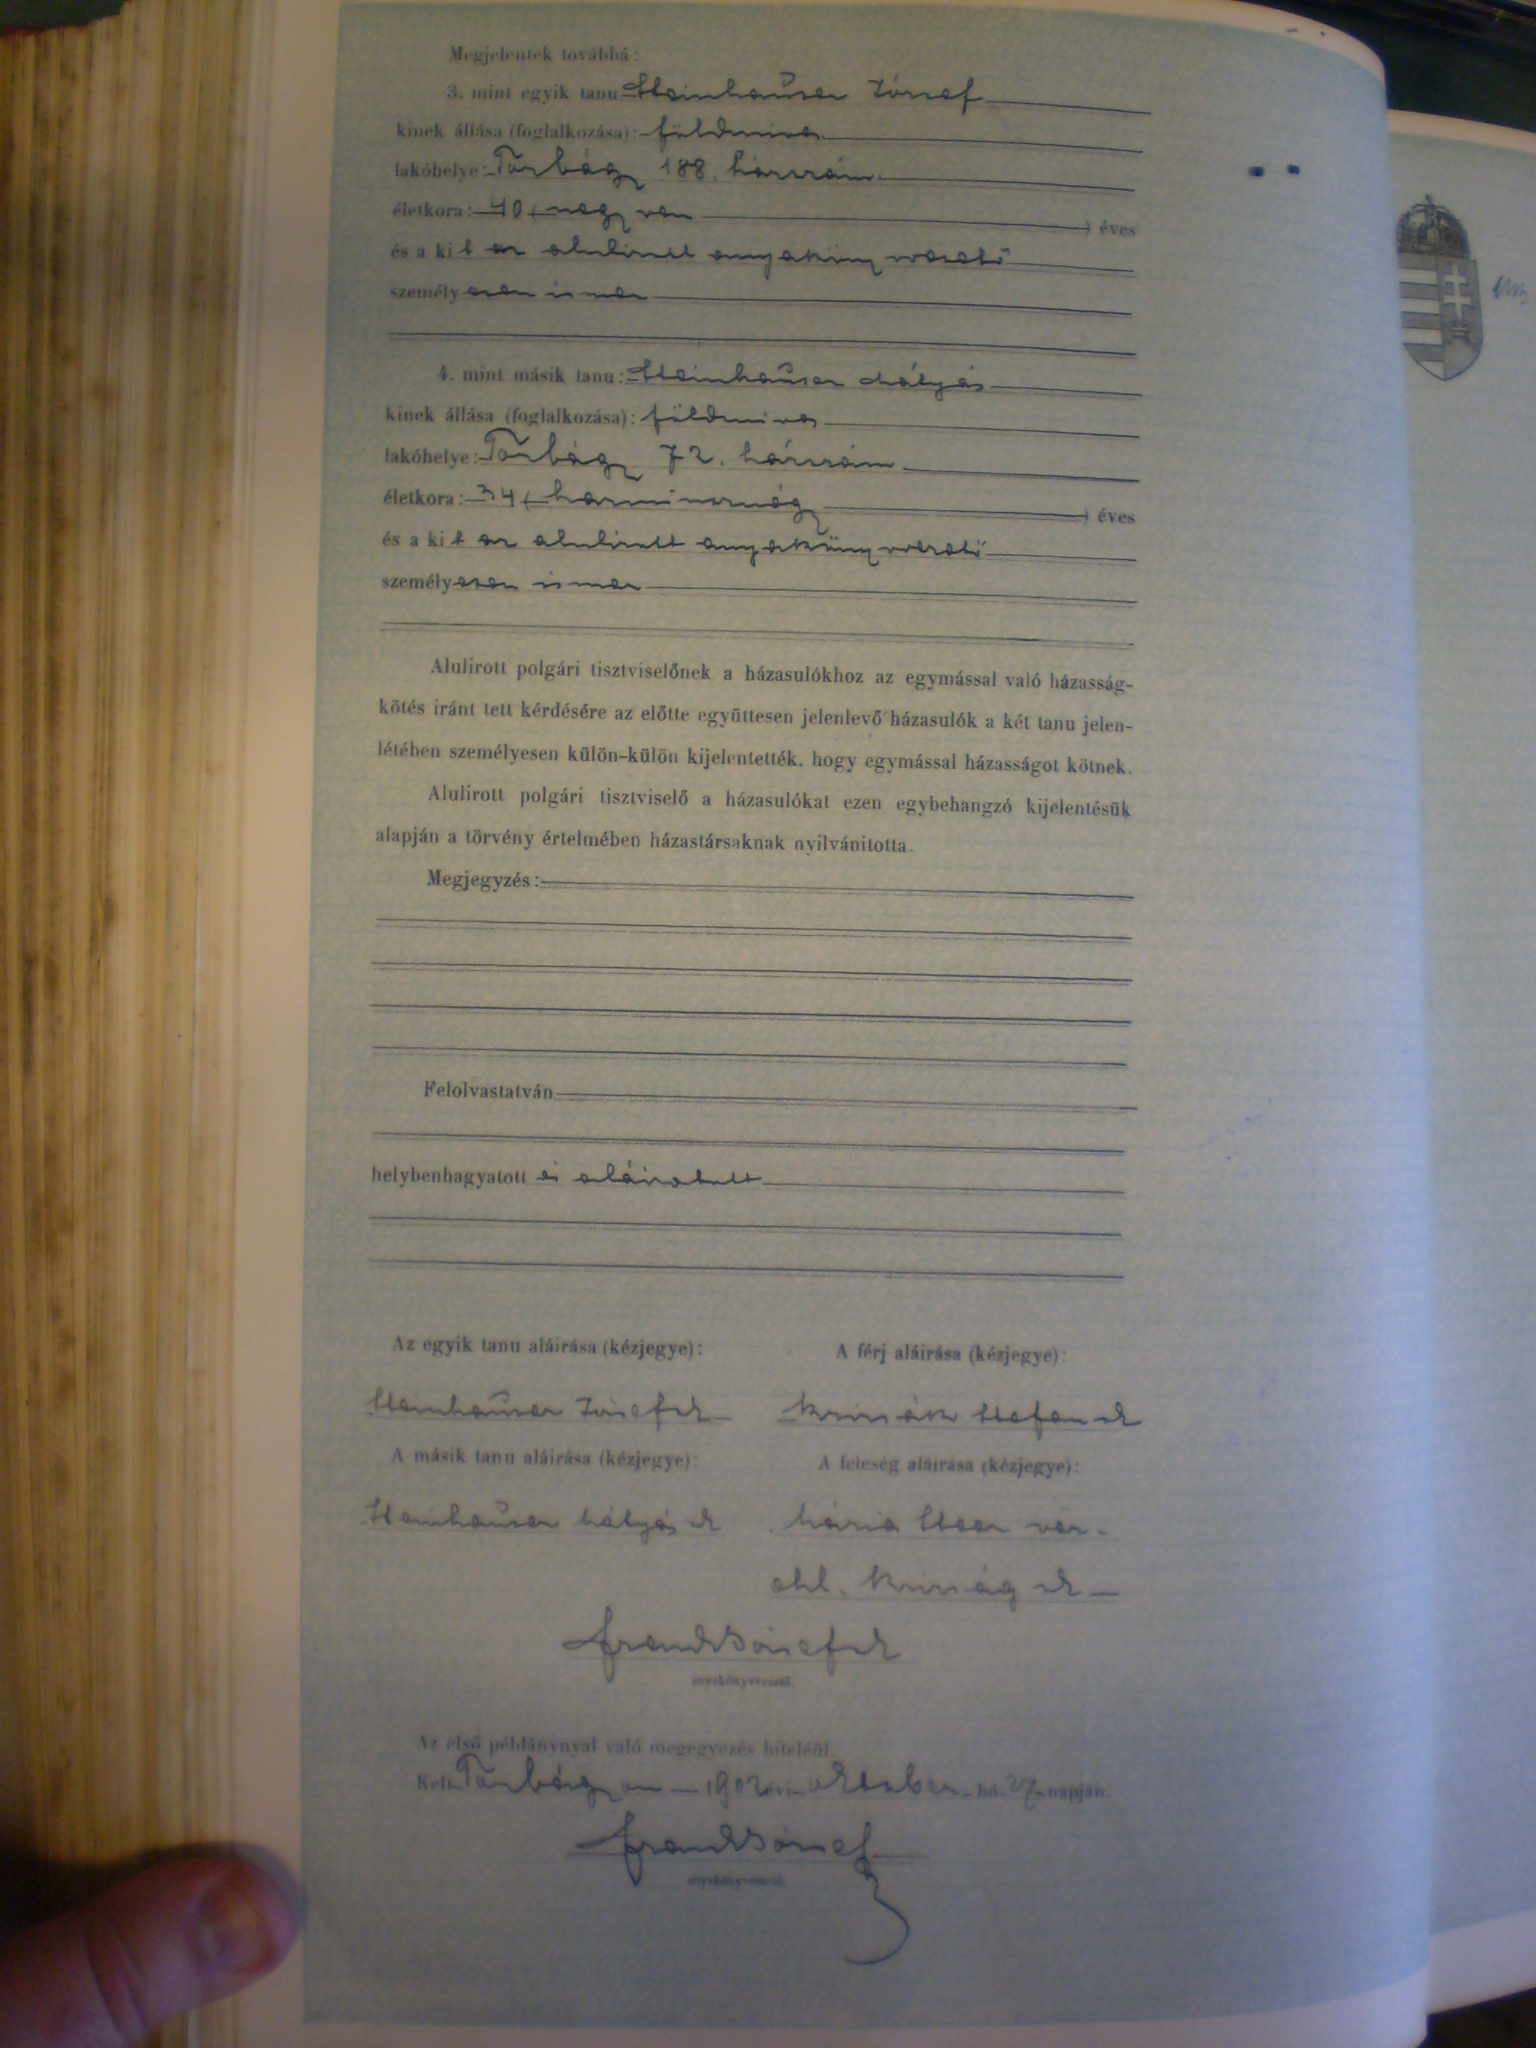 Megjelentek továbbá:
3. mint egyik tanu Steinhauser József
kinek állása (foglalkozása): földmives
lakóhelye: Torbágy 188. házszám.
életkora: 40 (negyven ) éves
és a kit az alulirott anyakönyvvezető
személyesen ismer
4. mint másik tanu: Steinhauser Mátyás
kinek állása (foglalkozása): földmives
lakóhelye: Torbágy 72. házszám.
életkora: 34 (harmincnégy ) éves
és a kit az alulirott anyakönyvvezető
személyesen ismer
Alulirott polgári tisztviselőnek a házasulókhoz az egymással való házasság-
kötés iránt tett kérdésére az előtte együttesen jelenlevő házasulók a két tanu jelen-
létében személyesen külön-külön kijelentették, hogy egymással házasságot kötnek.
Alulirott polgári tisztviselő a házasulókat ezen egybehangzó kijelentésük
alapján a törvény értelmében házastársaknak nyilvánitotta.
Megjegyzés:
Felolvastatván
helybenhagyatott és aláiratott
Az egyik tanu aláirása (kézjegye): A férj aláirása (kézjegye):
Steinhauser József sk Stefan sk
A másik tanu aláirása (kézjegye): A feleség aláirása (kézjegye):
Steinhauser Mátyás sk Mária ver-
ehl. sk
Frank József sk
anyakönyvvezető.
Az első példánynyal való megegyezés hiteléül.
Kelt Torbágyon 1902 évi október hó 27 napján.
Frank József
anyakönyvvezető.